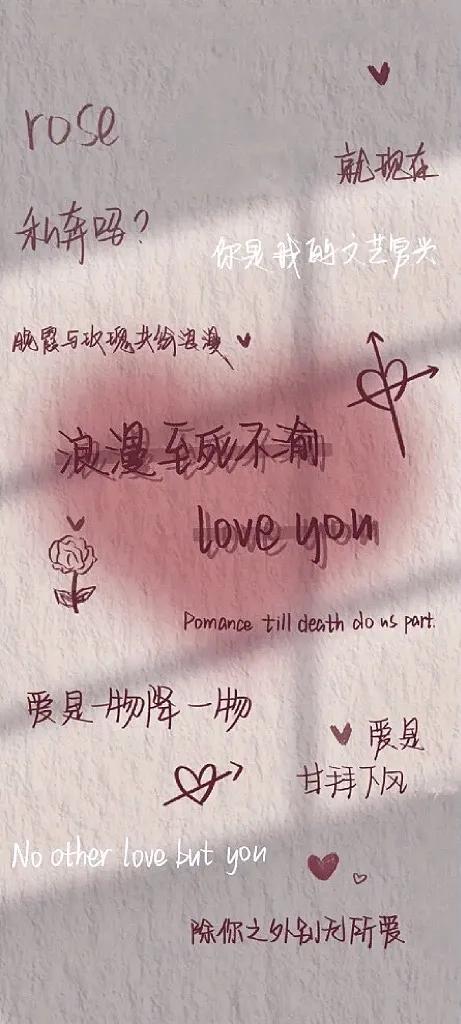 rose
就现在
私奔吗?
你是我的文艺冒头
晚霞与玫瑰共纷浪漫
浪漫至死不渝
love you
Pomance till death do us part.
爱是一物降一物
爱是
甘拜下风
No other love but you
除你之外别无所爱